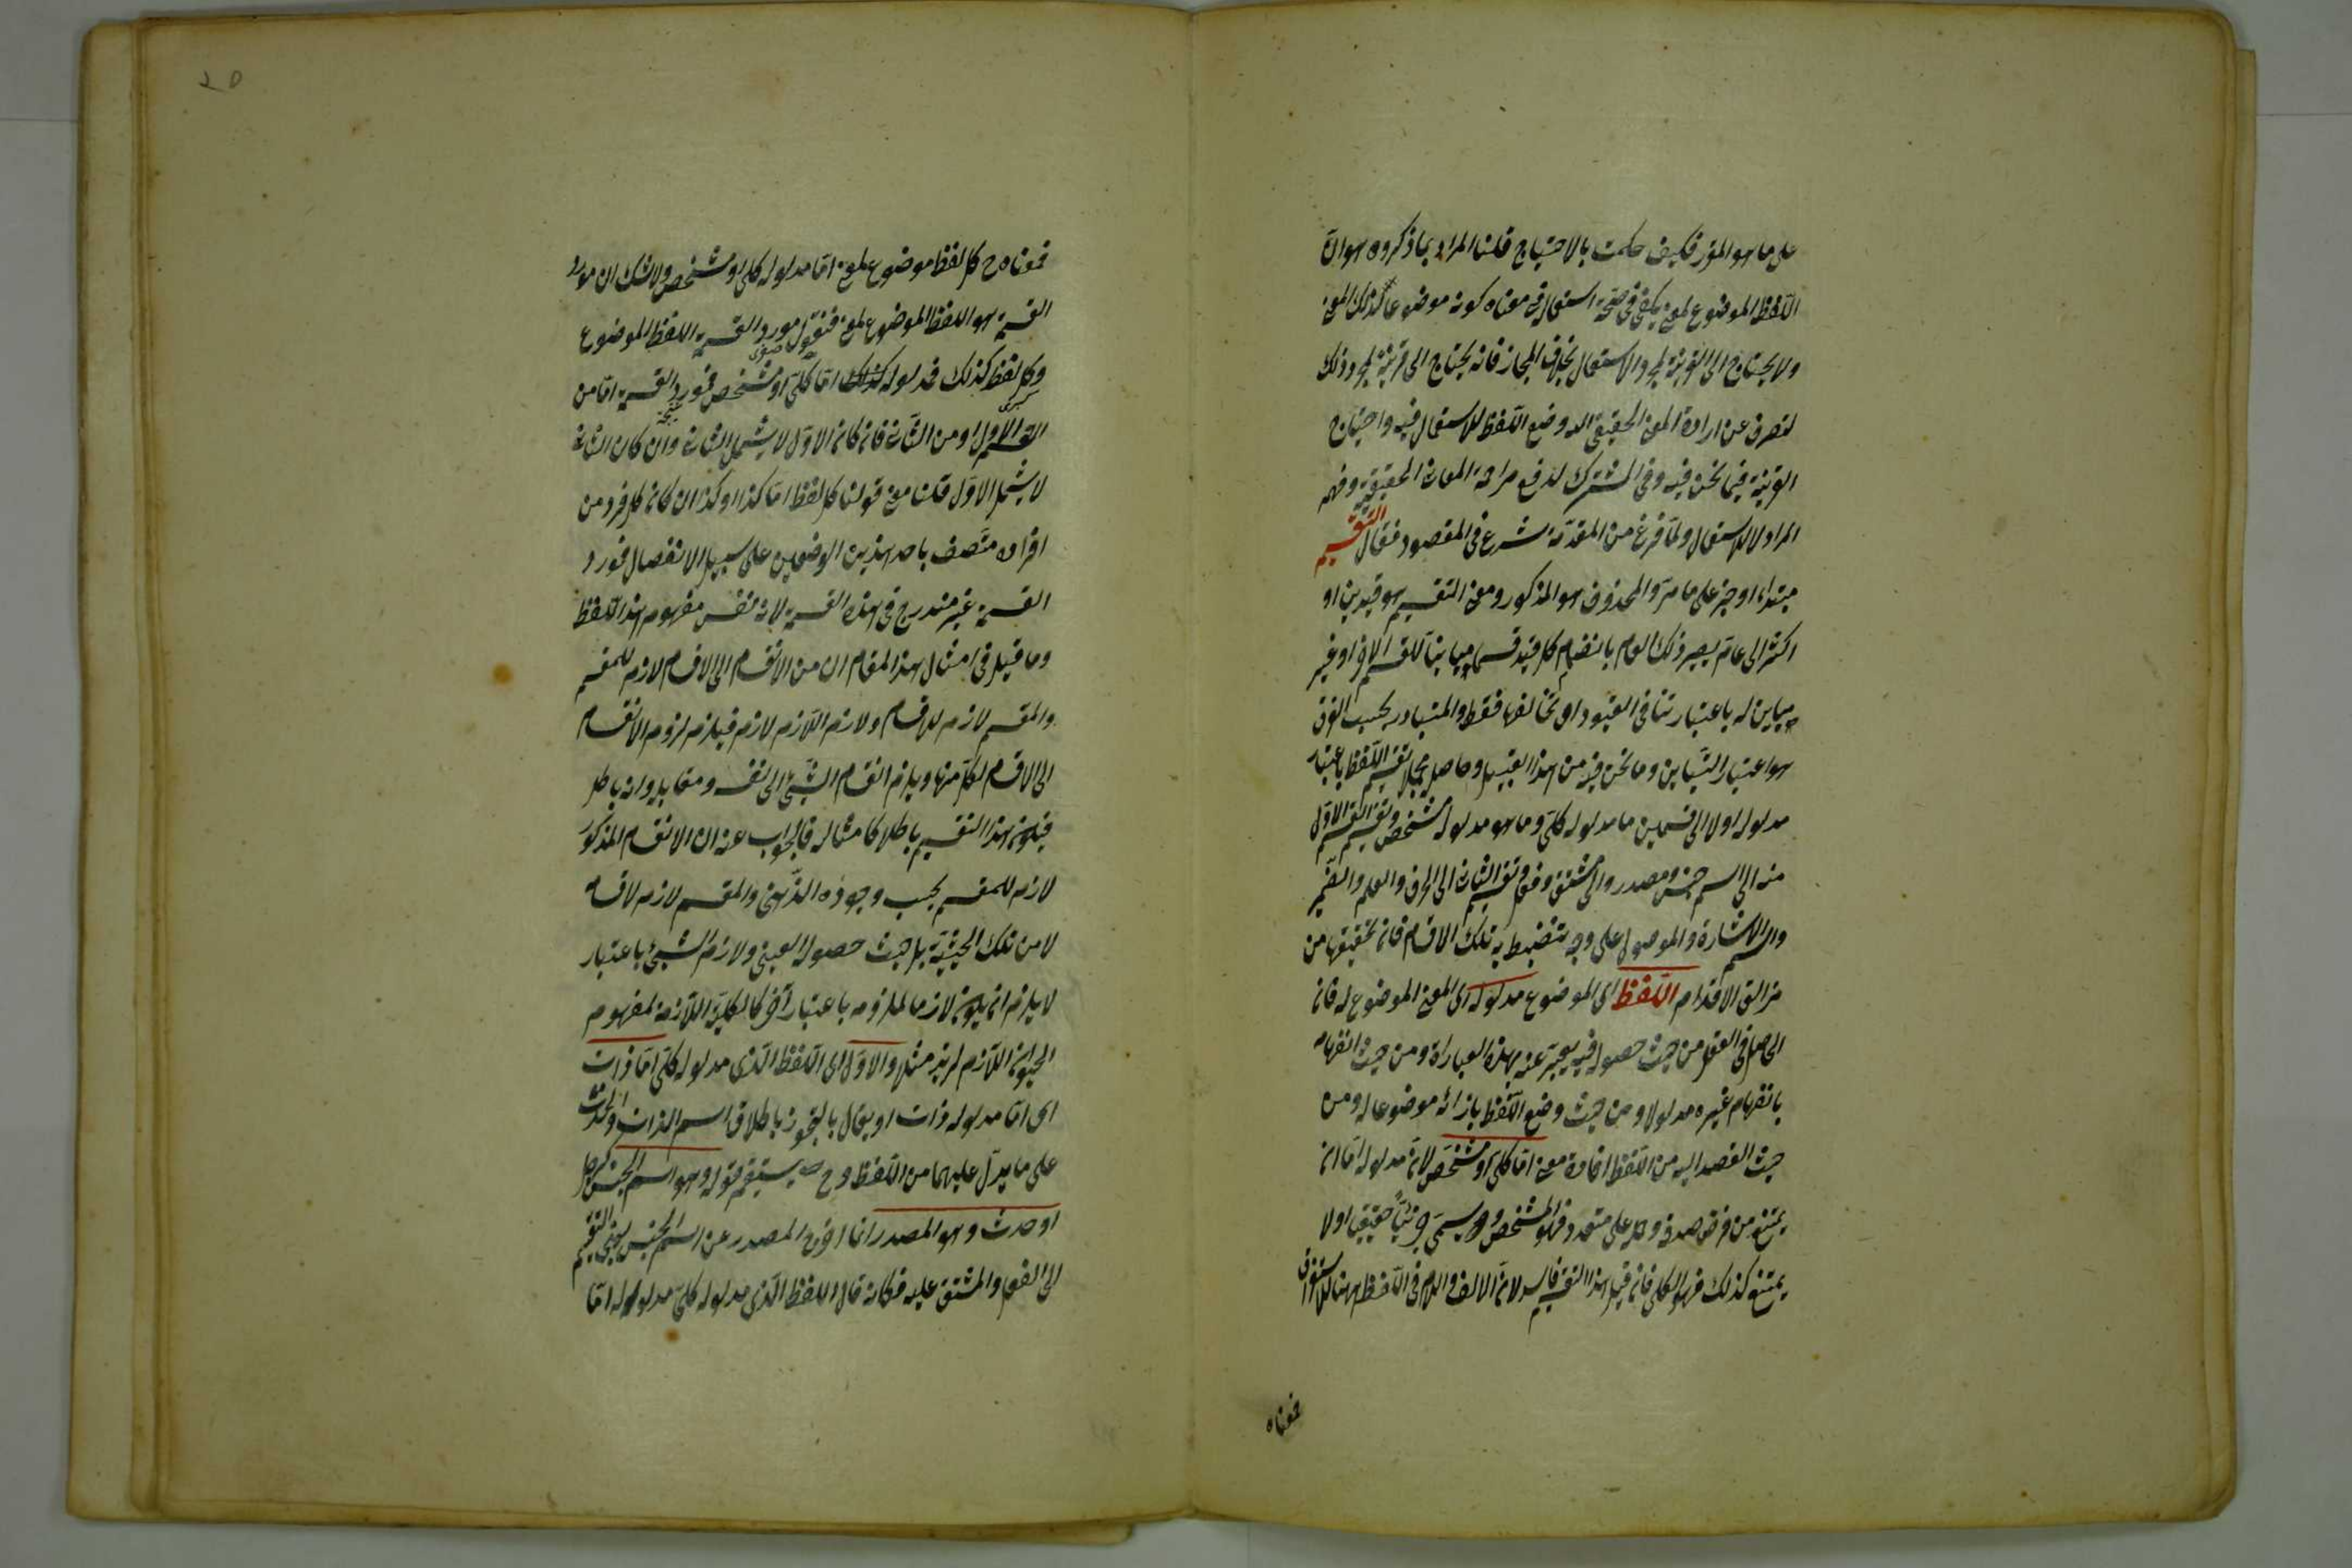 على ما هو المقرر فكيف حكمت بالاحتياج قلنا المراد بما ذكروه هو ان
اللفظ الموضوع لمعنى يكفى فى صحة استعماله فى معناه كونه موضوعا لذلك المعنى
ولا يحتاج الى القرينة لمجرد الاستعمال بخلاف المجاز فانه يحتاج الى قرينة لمجرد ذلك
لتصرف عن ارادة المعنى الحقيقى الذى وضع اللفظ للاستعمال فيه واحتياج
القرينة فيما نحن فيه وفى المشترك لدفع مزاحمة المعانى الحقيقية وفهم
المراد لا للاستعمال ولما فرغ من المقدمة شرع فى المقصود فقال التقسيم
مبتداء او خبر على ما مر والمحذوف هو المذكور ومعنى التقسيم هو قيدين او
اكثر الى عام يصير ذلك العام بانضمام كل قيد قسما مباينا للقسم الاخر او غير
مباين له باعتبار تنافى القيود او تخالفها فقط والمتبادر بحسب العرف
هو اعتبار التباين وما نحن فيه من هذا القبيل وحاصل مجمله تقسيم اللفظ باعتبار
مدلوله اولا الى قسمين ما مدلوله كلى وما هو مدلوله مشخص وتقسيم القسم الاول
منه الى اسم جنس ومصدر والى مشتق وفعل وتقسيم الثانى الى الحرف والعلم والضمير
واسم الاشارة والموصول على وجه ينضبط به تلك الاقسام فان تحقيقها من
مزالق الاقدام اللفظ اى الموضوع مدلوله اى المعنى الموضوع له فان
الحاصل فى العقل من حيث حصوله فيه يعبر عنه بهذه العبارة ومن حيث انفهامه
بانفهام غيره مدلولا ومن حيث وضع اللفظ بازائه موضوعا له ومن
حيث القصد اليه من اللفظ افادة معنى اما كلى او مشخص لان مدلوله اما ان
يمتنع من فرض صدقه وحمله على متعدد فهو المشخص ويسمى جزئيا حقيقيا او لا
يمتنع كذلك فهو الكلى فان قيل هذا التقسيم فاسد لان الالف واللام فى اللفظ ههنا للاستغراق
فمعناه
٢٥
فمعناه ح كل لفظ موضوع لمعنى اما مدلوله كلى او مشخص ولا شك ان مورد
القسمة هو اللفظ الموضوع لمعنى فنقول مورد القسمة اللفظ الموضوع
صغرى
وكل لفظ كذلك فمدلوله كذلك اما كلى او مشخص فمورد القسمة اما من
كبرى نتيجة
القسم الاول او من الثانى فان كان الاول لا يشمل الثانى وان كان الثانى
لا يشمل الاول قلنا معنى قولنا كل لفظ اما كذا او كذا ان كان كل فرد من
افراده متصف باحد هذين الوصفين على سبيل الانفصال فمورد
القسمة غير مندرج فى هذه القسمة لانه نفس مفهوم هذا اللفظ
وما قيل فى امثال هذا المقام ان من الانقسام الى الاقسام لازم للمقسم
والمقسم لازم للاقسام ولازم اللازم لازم فيلزم لزوم الانقسام
الى الاقسام لكل منها ويلزم انقسام الشئ الى نفسه ومقابله وانه باطل
فيكون هذا التقسيم باطلا كامثاله فالجواب عنه ان الانقسام المذكور
لازم للمقسم بحسب وجوده الذهنى والمقسم لازم لاقسامه
لا من تلك الحيثية بل حيث حصوله العينى ولازم الشئ باعتبار
لا يلزم ان يكون لازما لملزومه باعتبار آخر كالكلية اللازمة لمفهوم
الحيوان اللازم لزيد مثلا والاول اى اللفظ الذى مدلوله كلى اما ذات
اى اما مدلوله ذات او يقال بالتجوز باطلاق اسم الذات والحدث
على ما يدل عليهما من اللفظ وح يستقيم قوله وهو اسم الجنس كرجل
او حدث وهو المصدر انما اخر المصدر عن اسم الجنس ليبنى التقسيم
الى الفعل والمشتق عليه فكانه قال اللفظ الذى مدلوله كلى مدلوله اما